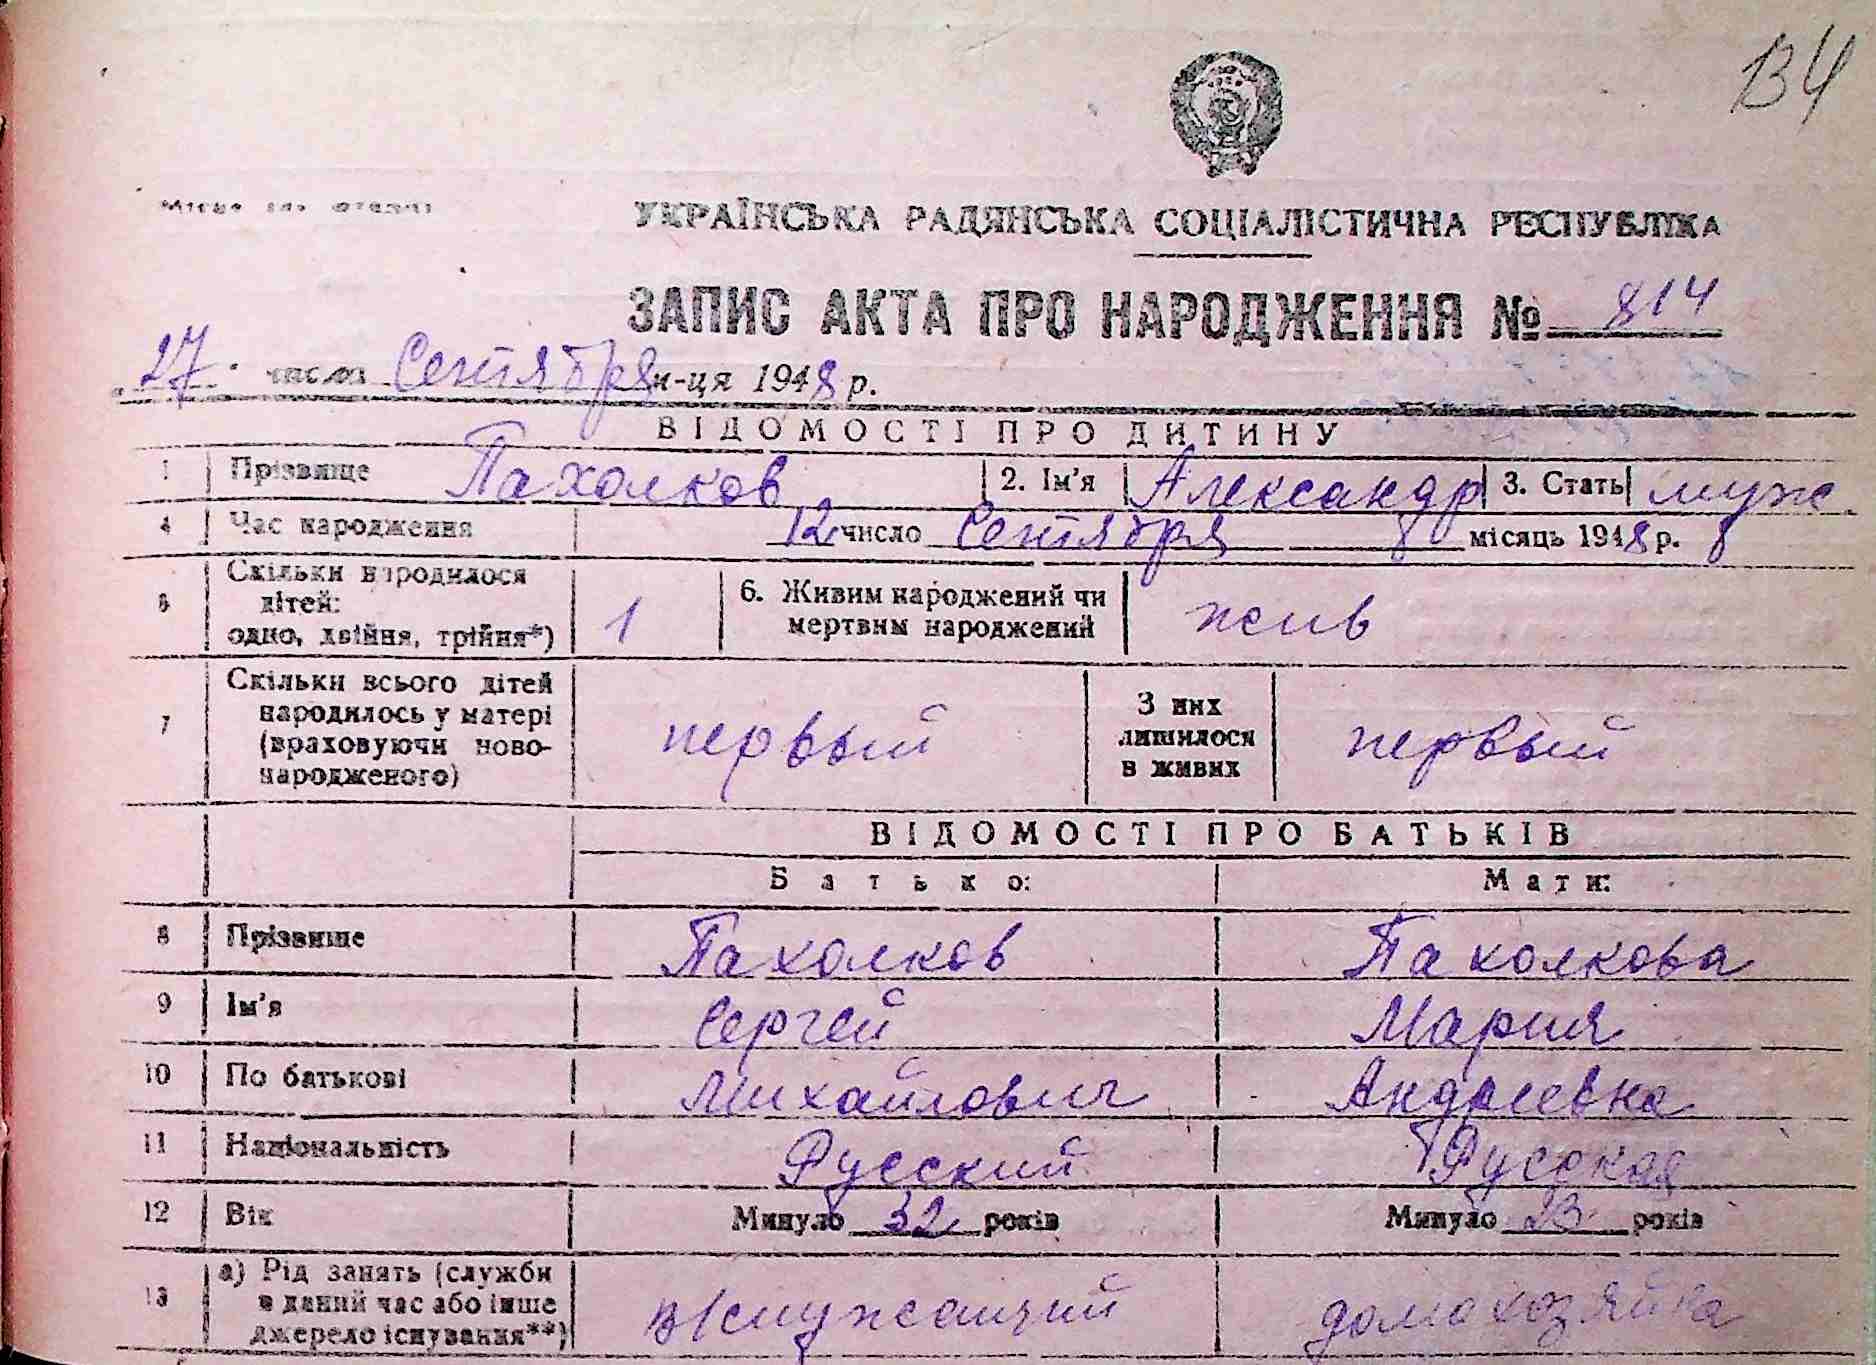 134
Місце для
УКРАЇНСЬКА РАДЯНСЬКА СОЦІАЛІСТИЧНА РЕСПУБЛІКА
ЗАПИС АКТА ПРО НАРОДЖЕННЯ № 814
27 числа Сентября м-ця 1948 р.
ВІДОМОСТІ ПРО ДИТИНУ
1 Прізвище Пахолков 2. Ім'я Александр 3. Стать муж.
4 Час народження 12 число Сентября місяць 1948 р.
5 Скільки народилося дітей: одно, двійня, трійня*) 1 6. Живим народжений чи мертвим народжений жив
7 Скільки всього дітей народилось у матері (враховуючи новонародженого) первый З них лишилося в живих первый
ВІДОМОСТІ ПРО БАТЬКІВ
Батько: Мати:
8 Прізвище Пахолков Пахолкова
9 Ім'я Сергей Мария
10 По батькові Михайлович Андреевна
11 Національність Русский Русская
12 Вік Минуло 32 років Минуло 23 років
13 а) Рід занять (служби в даний час або інше джерело існування**) в/служащий домохозяйка